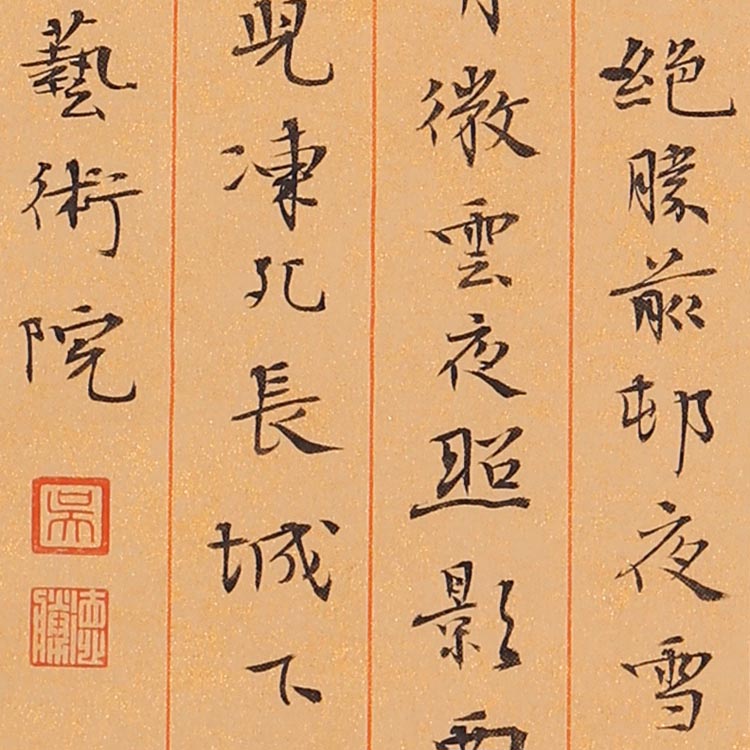 絕勝前邨夜雪
微雲夜照影
兒凍死長城下
藝術院
吳